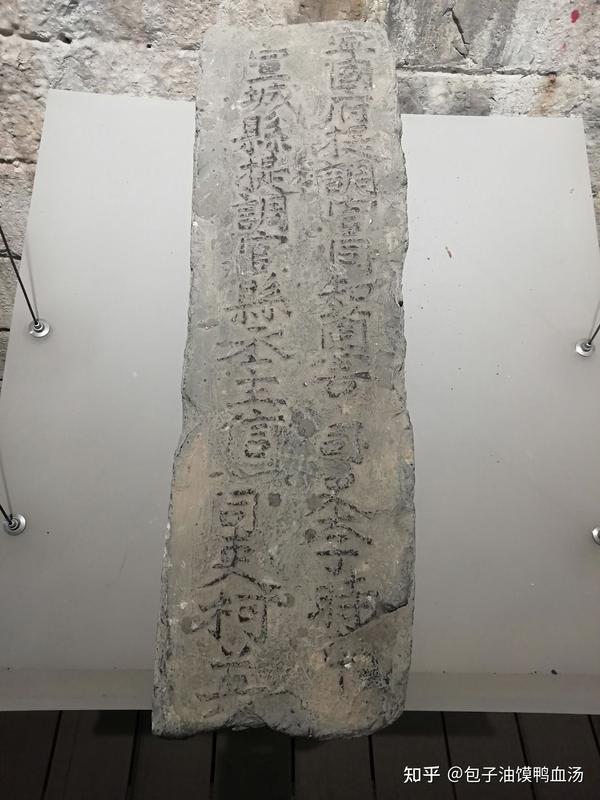 寧國府提調官同知周善 司吏李時
宣城縣提調官縣丞王逭 司吏柯
知乎 @包子油馍鸭血汤